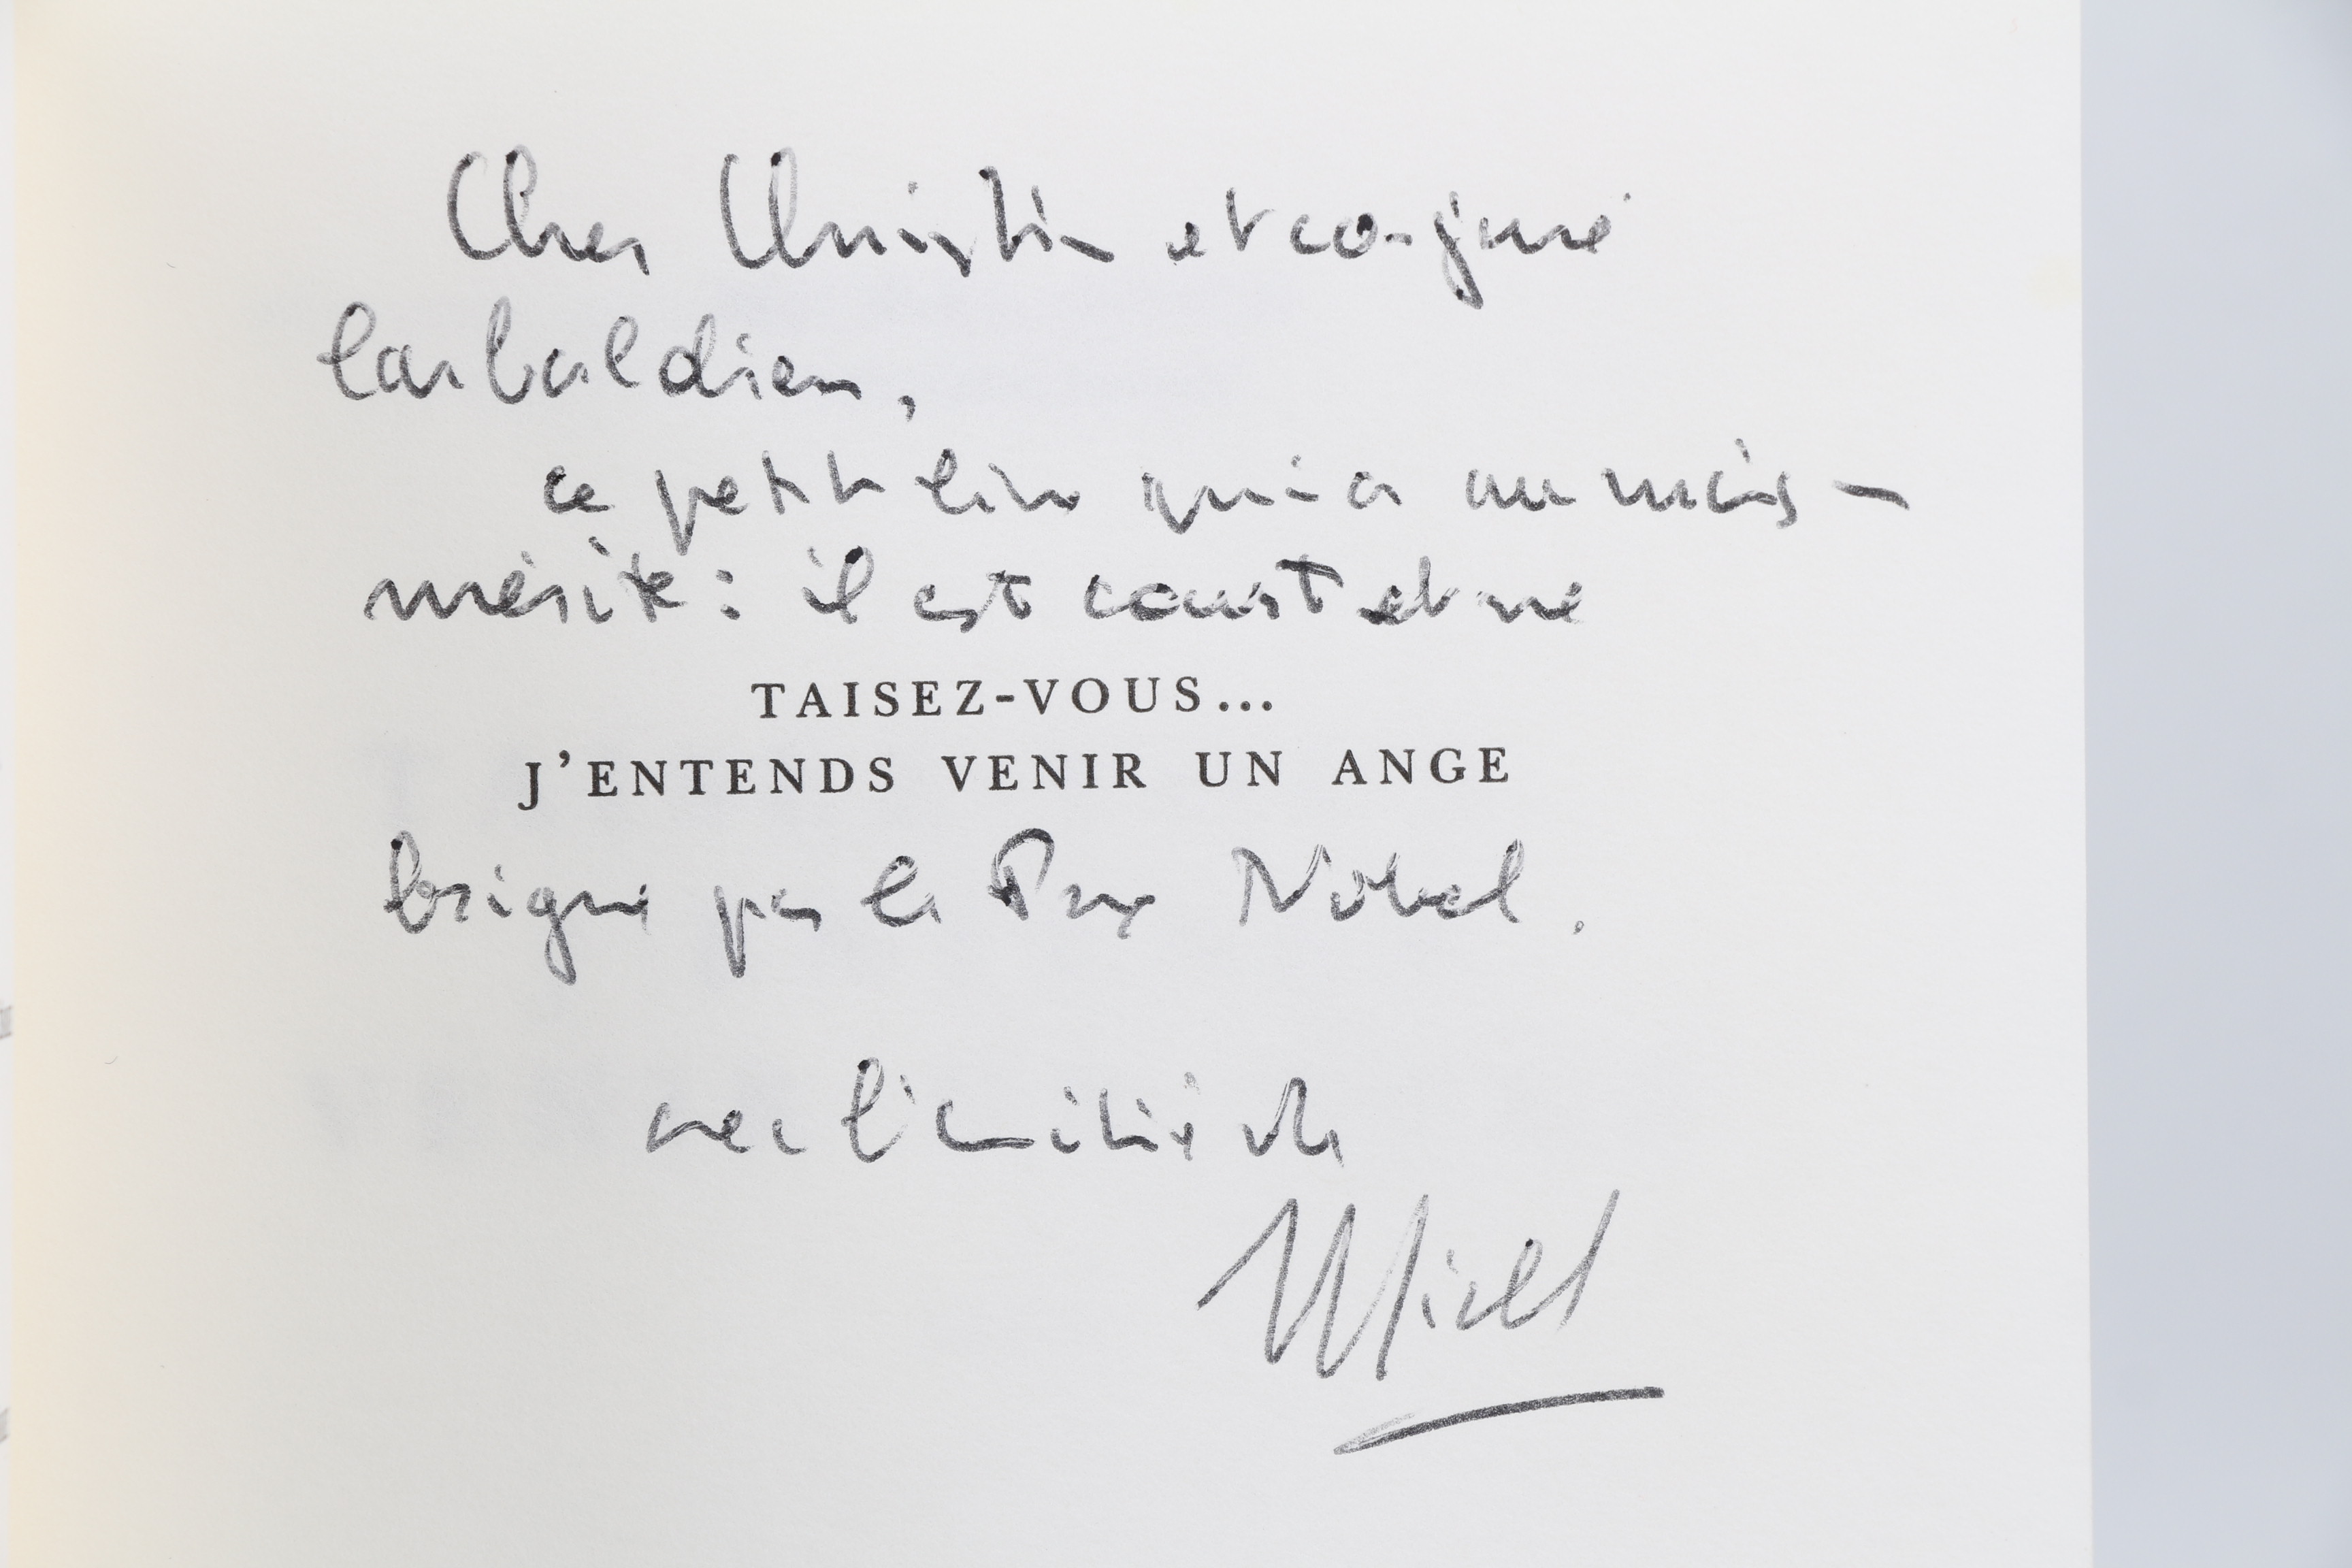 Cher Christian et conjuré
garibaldien,
ce petit livre qui a un mains
mérite : il est court et ne
TAISEZ-VOUS...
J'ENTENDS VENIR UN ANGE
brigue pas le Prix Nobel.
avec l'amitié de
Michel